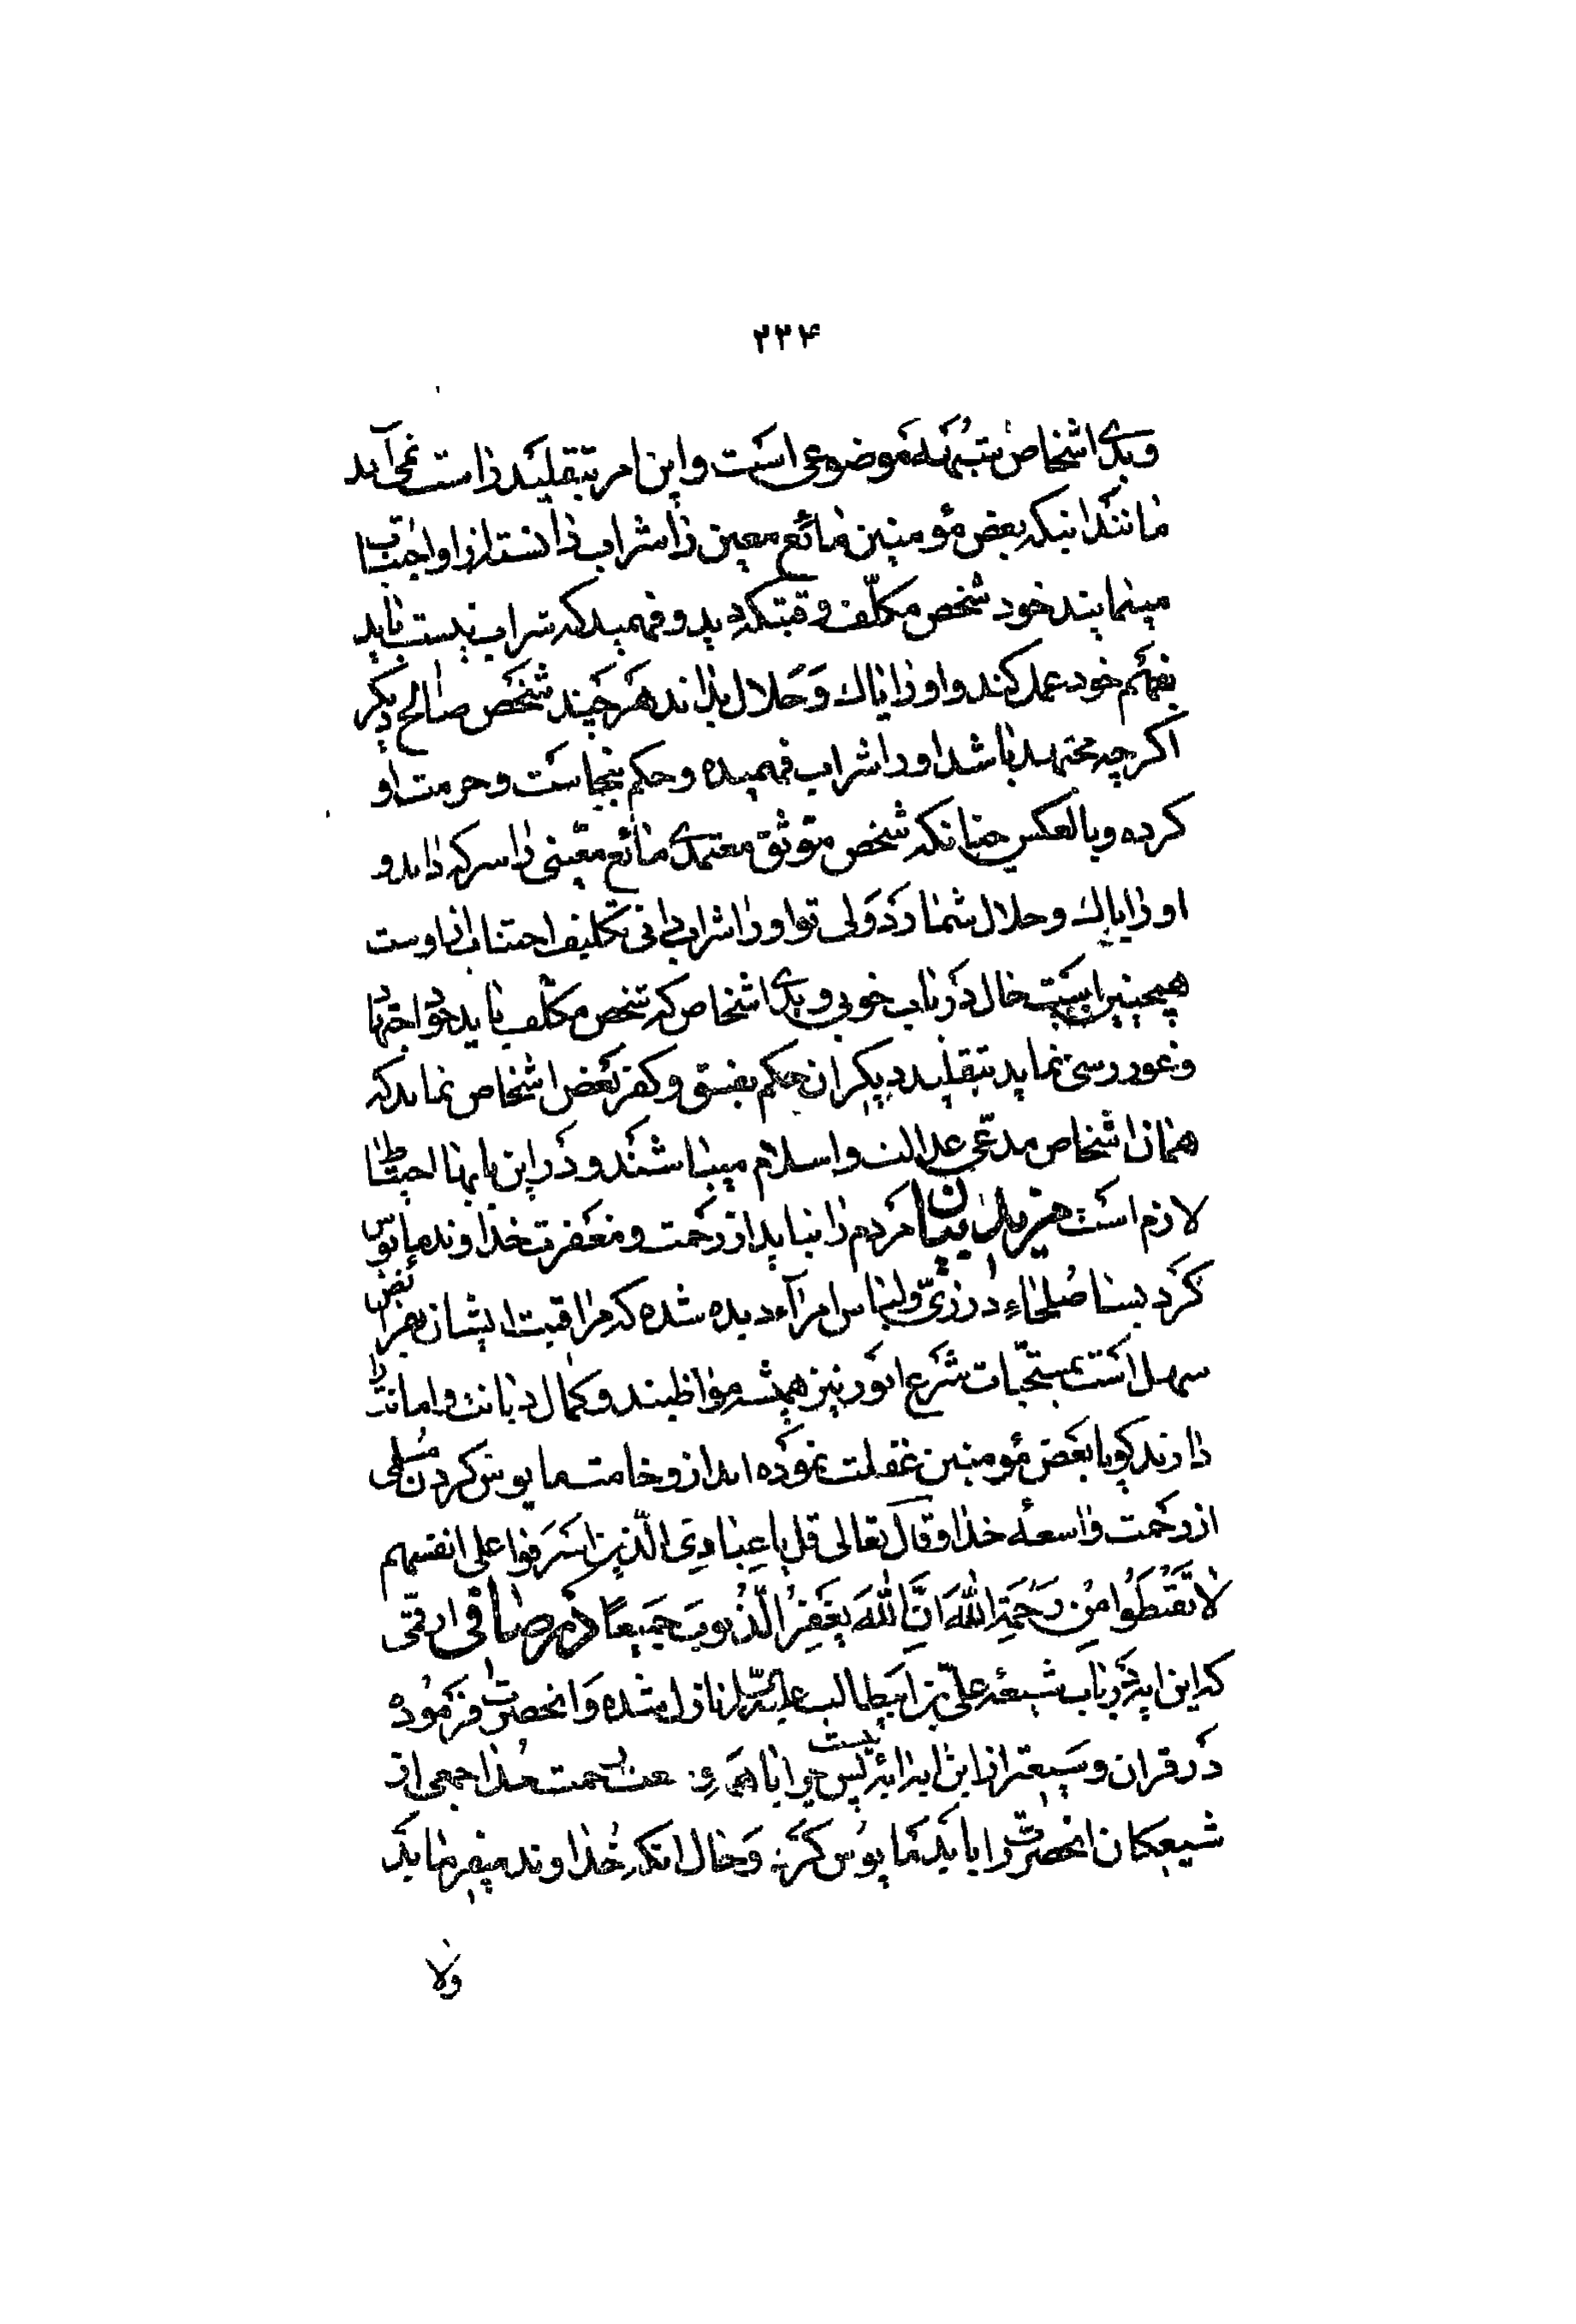 ۲۳۴
وبدی اشخاص شبهه موضوعی است واین امر بتقلید راست نمی‌آید
مانند اینکه بعض مؤمنین مائع معین را شراب دانسته از او اجتناب
مینمایند خود شخص مکلّف وقتیکه دید و فهمید که شراب نیست باید
بفهم خود عمل کند و او را پاک و حلال بداند هر چند شخص صالح دیگر
اکر چه مجتهد باشد او را شراب فهمیده و حکم بنجاست و حرمت او
کرده و بالعکس چنانکه شخص موثوق معتمدی مائع معینی را سرکه داند و
او را پاک و حلال شمارد ولی تو او را شراب دانی تکلیف اجتناب از اوست
همچنین است حال در باب خوبی و بدی اشخاص که شخص مکلّف باید خود اجتهاد
و غور رسی نماید بتقلید دیکران حکم بفسق و کفر بعض اشخاص نماید که
همان اشخاص مدّعی عدالت و اسلام میباشند و در این بابها احتیاط
لازم است مردم را نباید از رحمت و مغفرت خداوند مایوس
کرد بسا صلحاء در زیّ ولباس امرآء دیده شده که مراقبت ایشان بفرائض
سهل است بمستحبّات شرع انور نیز همیشه مواظبند و کمال دیانت و امانت را
دارند کویا بعض مؤمنین غفلت نموده اند از وخامت مایوس کردن مسلمی
از رحمت واسعهٔ خدا و قال تعالی قل یا عِبادِیَ الّذین اَسْرَفوا علی انفسهم
لا تَقْنَطُوا مِنْ رَحْمَةِ اللهَ اِنَّ اللهَ یَغْفِرُ الذُّنوبَ جَمیعاً در صافی از قمی
که این ایه در باب شیعهٔ علیّ بن ابیطالب علیه السّلام نازل شده و انحضرت فرموده
در قران وسیعتر از این ایه ایه نیست پس چرا باهَر رحمت خدا جمعی از
شیعکان انحضرت را باید مایوس کرد و حال انکه خداوند میفرماید
ولا